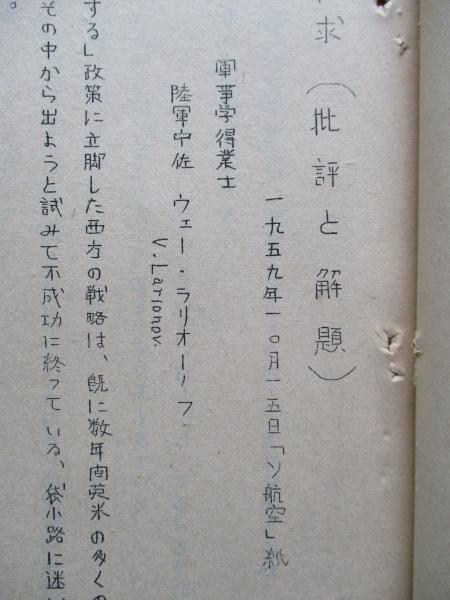 求(批評と解題)
一九五九年一〇月一五日「ソ航空」紙
軍事学得業士
陸軍中佐 ウェー・ラリオーノフ
V. Larionov.
する」政策に立脚した西方の戦略は、既に数年間英米の多くの
その中から出ようと試みて不成功に終っている、袋小路に迷い
。